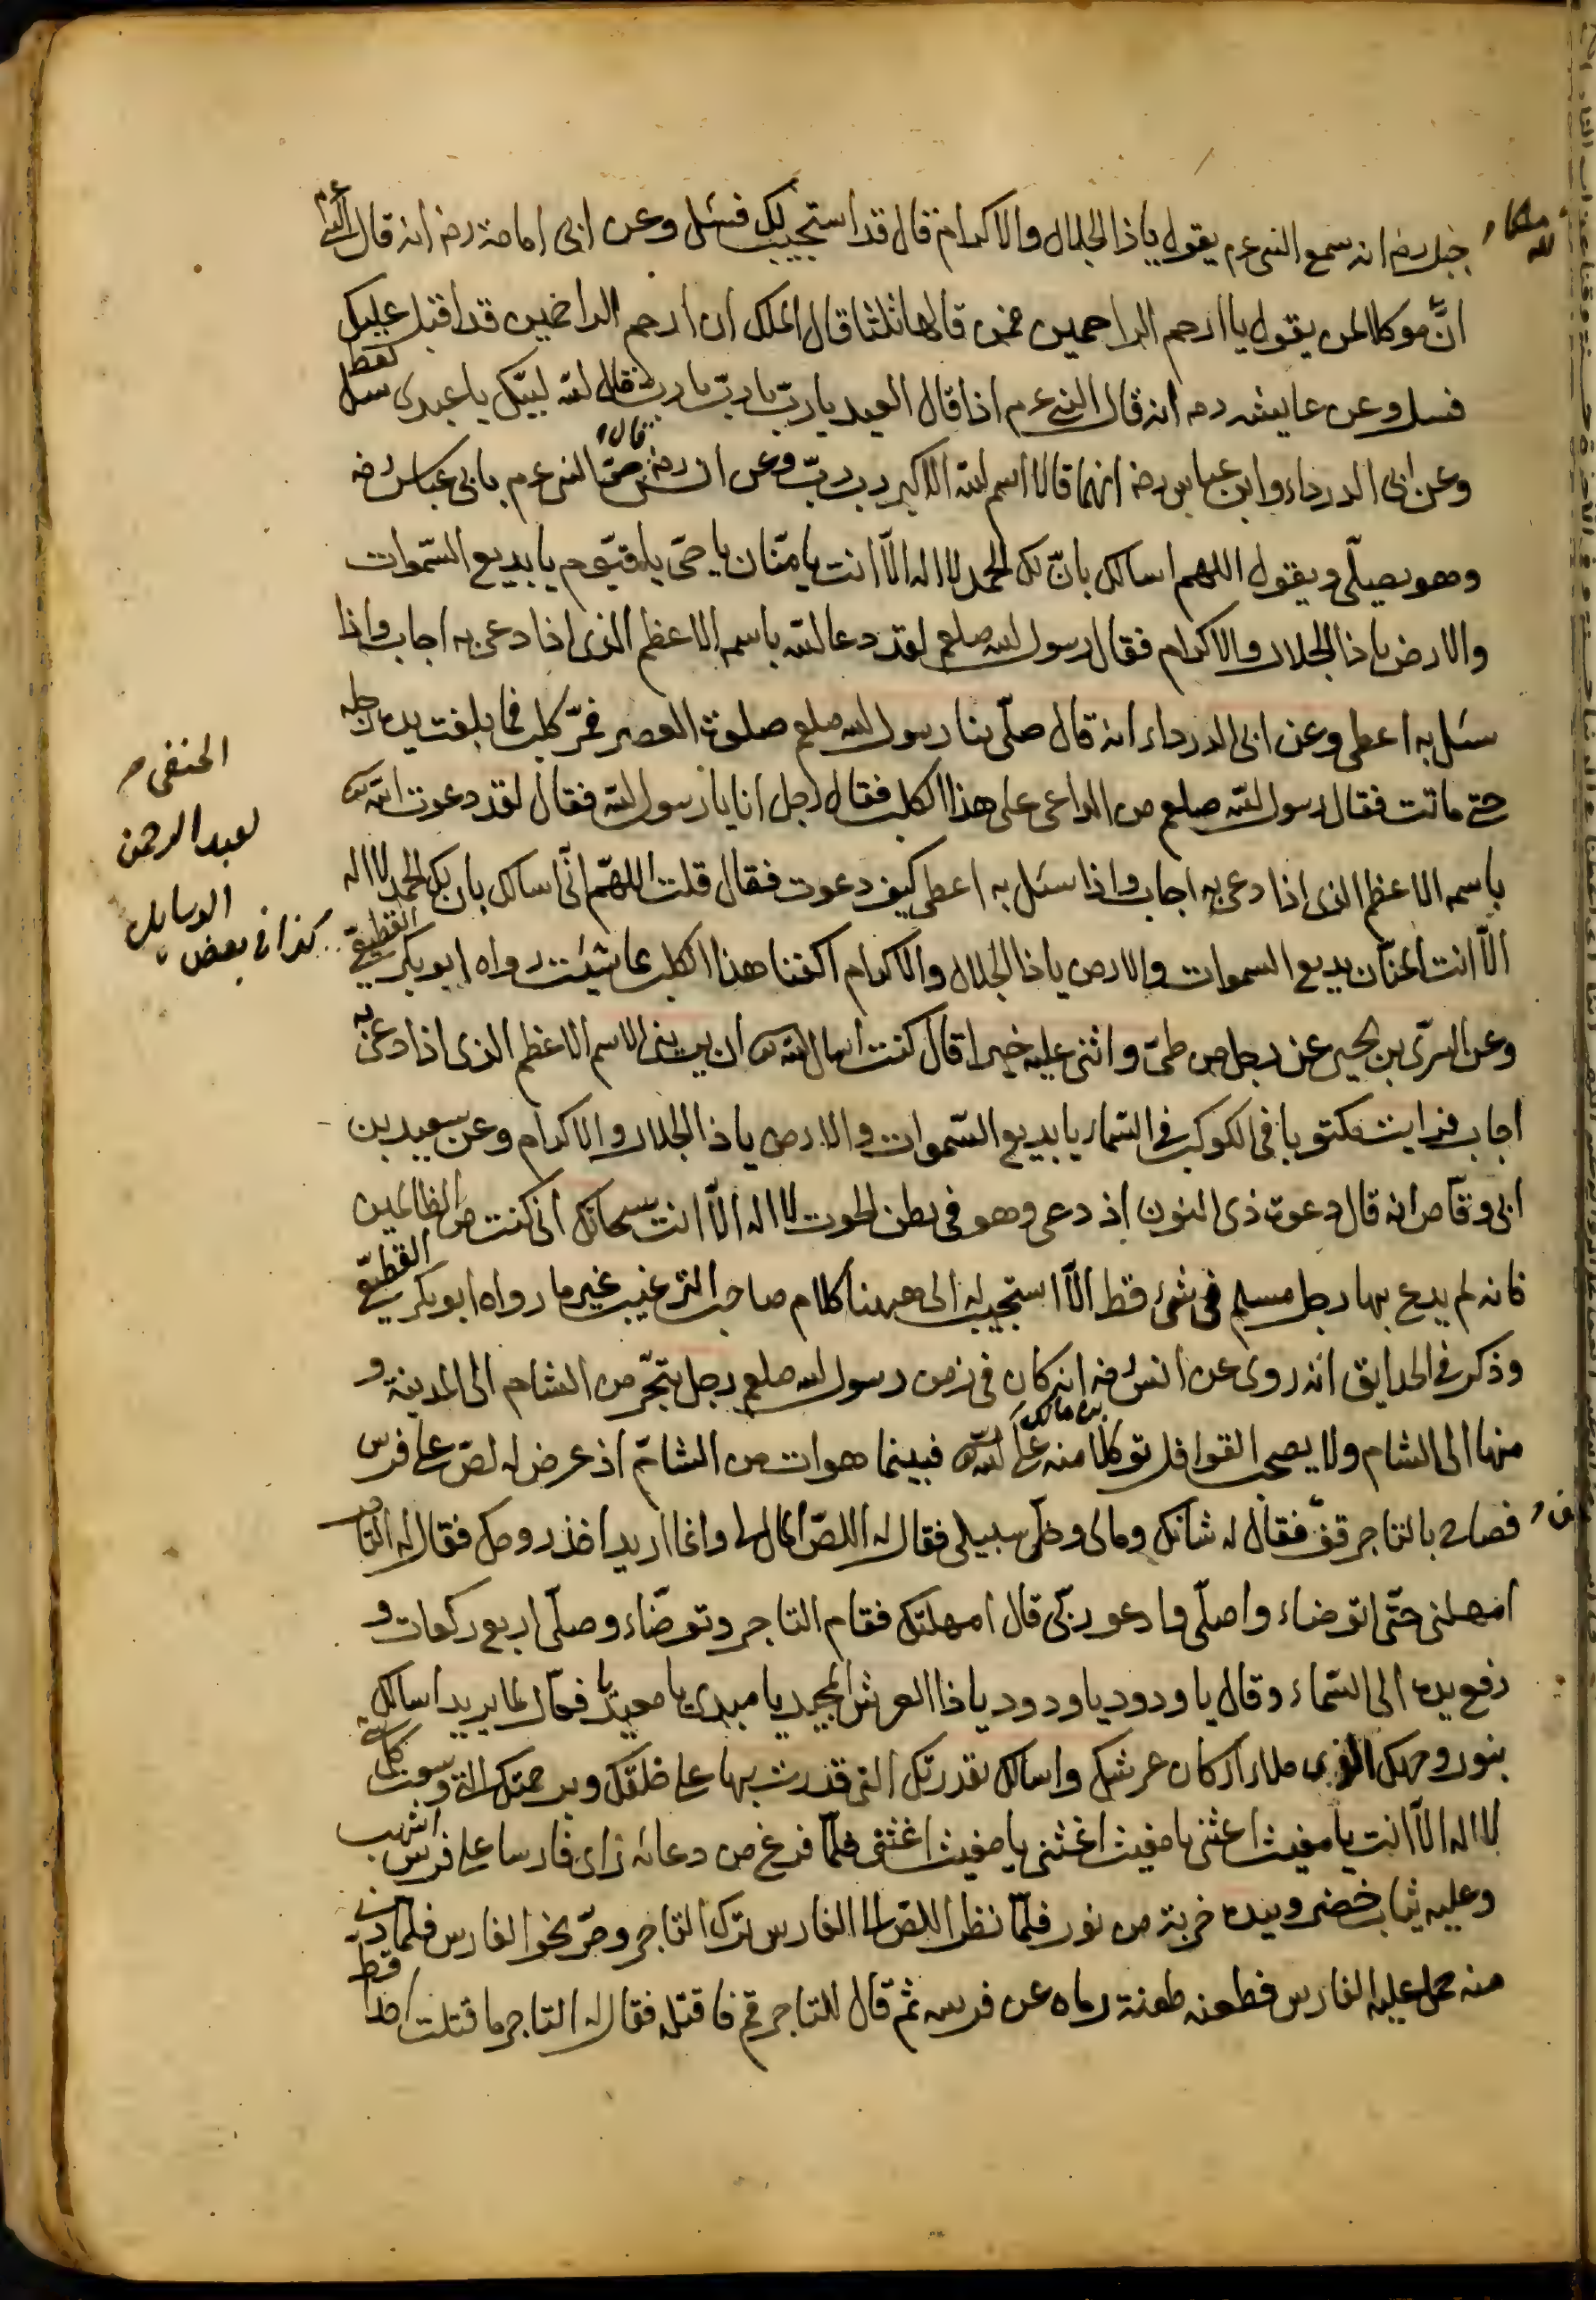 جبل رضه انه سمع النبى عم يقول يا ذا الجلال والاكرام قال قد استجيب لك فسئل وعن ابى امامة رضه انه قال النبى عم
لله ملكا
انَّ موكلا لمن يقول يا ارحم الراحمين فمن قالها ثلثا قال الملك ان ارحم الراحمين قد اقبل عليك
فسل وعن عايشه رضه انه قال النبى عم اذا قال العبد يا ربّ يا ربّ يا ربّ قال الله لبيّك يا عبدى سل تعط
وعن ابى الدرداء وابن عباس رضه انهما قالا اسم الله الاكبر رب ربّ وعن انس رضه قال مرّ النبى عم بابى عياش رضه
وهو يصلّى ويقول اللهم اسالك بانّ لك الحمد لا اله الاّ انت يا منّان يا حىّ يا قيّوم يا بديع السّموات
والارض يا ذا الجلال والاكرام فقال رسول الله صلعم لقد دعا الله باسمه الاعظم الذى اذا دعى به اجاب واذا
سئل به اعطى وعن ابى الدرداء انه قال صلّى بنا رسول الله صلعم صلوة العصر فمرّ كلب فما بلغت يده رجله
حتى ماتت فقال رسول الله صلعم من الداعى على هذا الكلب فقال رجل انا يا رسول الله فقال لقد دعوت الله
باسمه الاعظم الذى اذا دعى به اجاب واذا سئل به اعطى كيف دعوت فقال قلت اللهّم انّى اسالك بان لك الحمد لا اله
الاّ انت المنّان بديع السموات والارض يا ذا الجلال والاكرام اكفنا هذا الكلب بما شئت رواه ابو بكر القطيعى
وعن السرّى بن يحيى عن رجل من طىّ واثنى عليه خيرا قال كنت اسال الله ان يرينى الاسم الاعظم الذى اذا دعى به
اجاب فرايت مكتوبا فى الكوكب فى السماء يا بديع السّموات والارض يا ذا الجلال والاكرام وعن سعيد بن
ابى وقّاص انه قال دعوة ذى النون اذ دعى وهو فى بطن الحوت لا اله الاّ انت سبحانك انى كنت من الظالمين
فانه لم يدع بها رجل مسلم فى شئ قط الاّ استجيب له الى ههنا كلام صاحب الترغيب غير ما رواه ابو بكر القطيعى
وذكر فى الحدايق انه روى عن انس بن مالك رضه انه كان فى زمن رسول الله صلعم رجل يتجّر من الشام الى المدينة و
منها الى الشام ولا يصحب القوافل توكلا منه على الله فبينما هو ات من الشام اذ عرض له لصّ على فرس
فصاح بالتاجر قف فقال له شانك ومالى وخلّ سبيلى فقال له اللصّ المال لى وانما اريد اخذ روحك فقال له التاجر
امهلنى حتّى اتوضاء واصلّى وادعو ربّى قال امهلتك فقام التاجر وتوضّاء وصلّى اربع ركعات و
رفع يده الى السّماء وقال يا ودود يا ودود يا ذا العرش المجيد يا مبدئ يا معيد يا فعّال لما يريد اسالك
بنور وجهك الذى ملاء اركان عرشك واسالك بقدرتك التى قدرت بها على خلقك وبرحمتك التى وسعت كل شئ
لا اله الاّ انت يا مغيث اغثنى يا مغيث اغثنى يا مغيث اغثنى فلمّا فرغ من دعائه راى فارسا على فرس اشهب
وعليه ثياب خضر وبيده حربة من نور فلمّا نظر اللصّ الى الفارس ترك التاجر ومرّ نحو الفارس فلما دنى
منه حمل عليه الفارس فطعنه طعنة رماه عن فرسه ثم قال للتاجر قم فاقتله فقال له التاجر ما قتلت احدا قط
الحنفى
لعبد الرحمن
كذا فى بعض
الرسايل